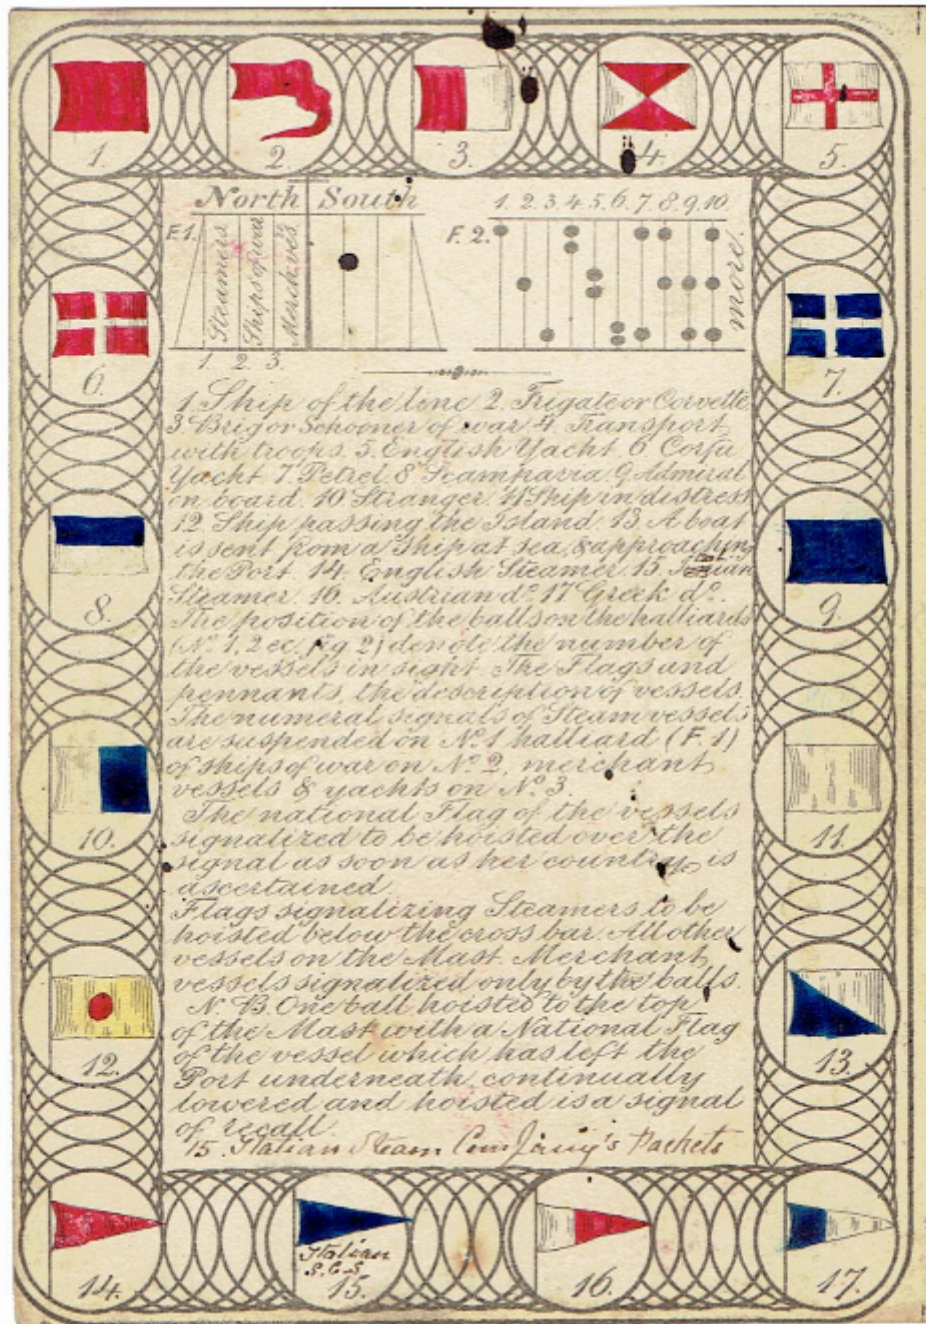 1. 2. 3. 4. 5.
North South
F.1. Steamers Ships of war Merch.ves.
1. 2. 3.
1. 2. 3. 4. 5. 6. 7. 8. 9. 10.
F. 2. more.
6. 7.
1 Ship of the line 2. Frigate or Corvette
3. Brig or Schooner of war 4. Transport
with troops. 5. English Yacht. 6 Corfu
Yacht 7. Petrel. 8 Scamparia. 9 Admiral
on board. 10 Stranger. 11 Ship in distress
12 Ship passing the Island. 13. A boat
is sent from a Ship at sea, & approaching
the Port. 14. English Steamer. 15.
Steamer. 16. Austrian do. 17 Greek do.
The position of the balls on the halliards
(No. 1, 2 ec. fig 2) denote the number of
the vessels in sight. The Flags and
pennants, the description of vessels.
The numeral signals of Steam vessels
are suspended on No. 1 halliard (F. 1)
of ships of war on No. 2, merchant
vessels & yachts on No. 3.
The national Flag of the vessels
signalized to be hoisted over the
signal as soon as her country is
ascertained.
Flags signalizing Steamers to be
hoisted below the cross bar. All other
vessels on the Mast. Merchant
vessels signalized only by the balls.
N. B. One ball hoisted to the top
of the Mast with a National Flag
of the vessel which has left the
Port underneath, continually
lowered and hoisted is a signal
of recall
15. Italian Steam Company's Packets
8. 9.
10. 11.
12. 13.
14. Italian S. C. S 15. 16. 17.